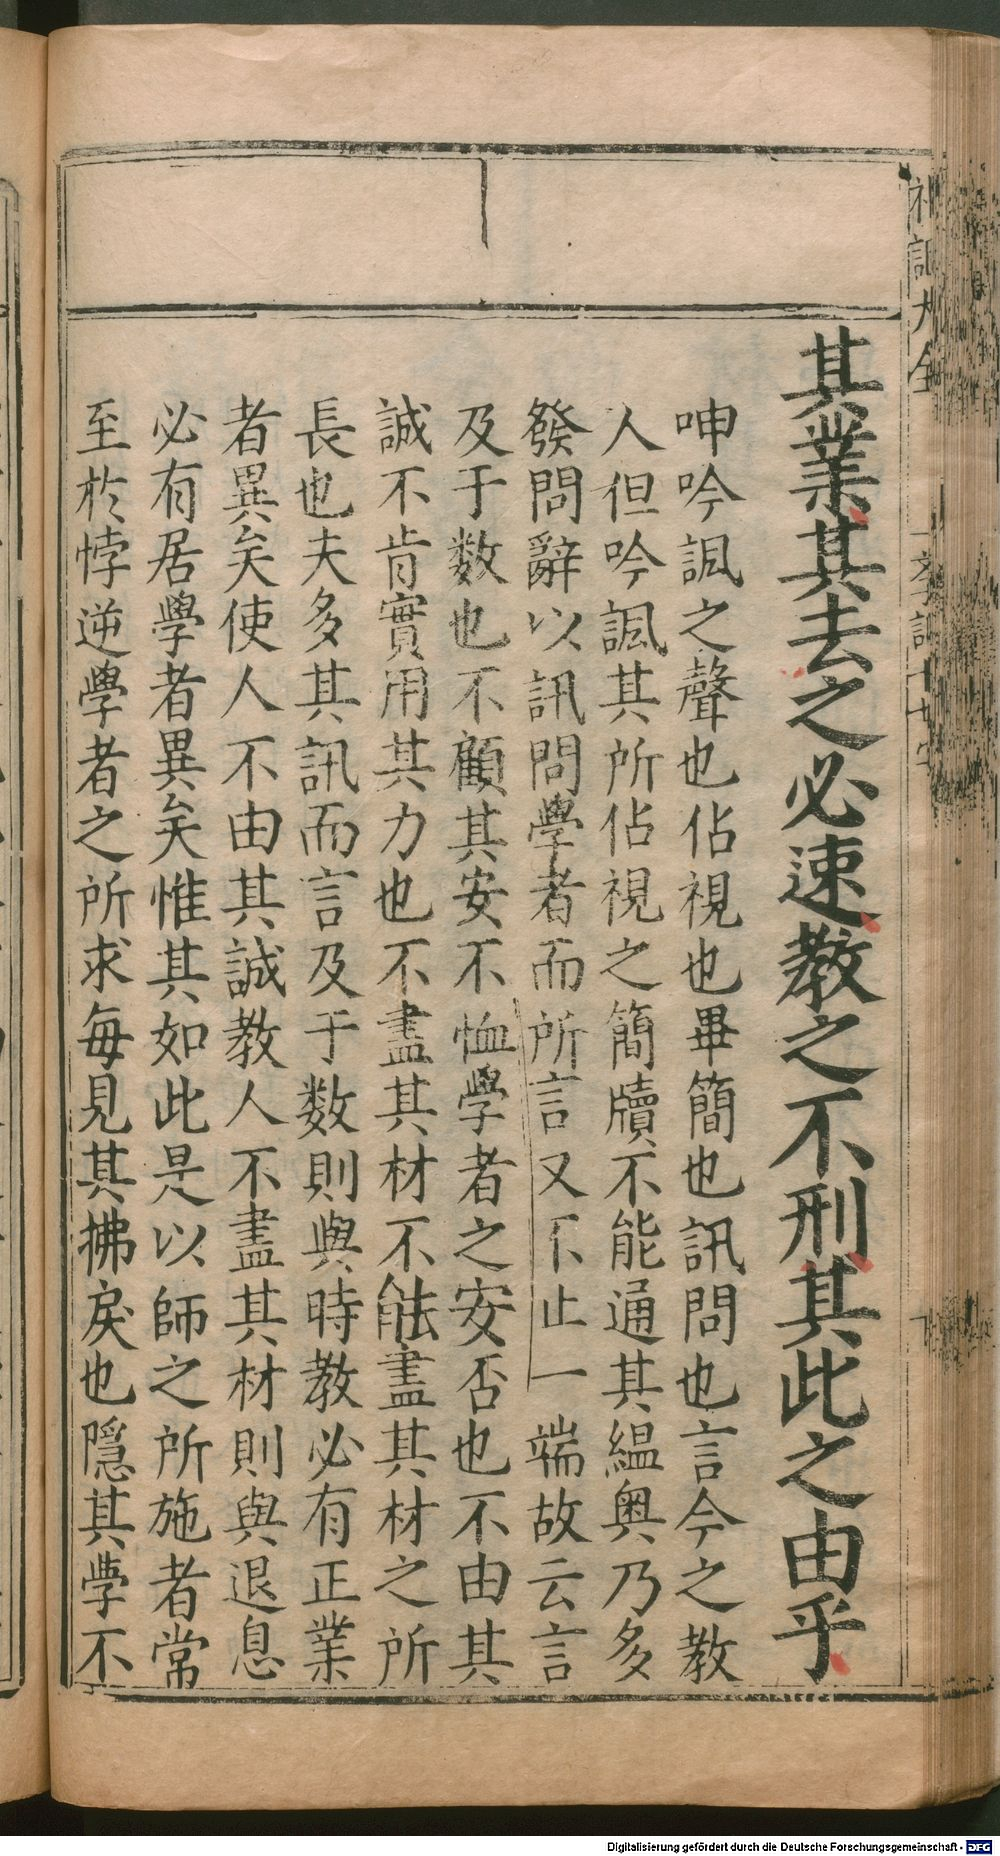 其業其去之必速教之不刑其此之由乎
呻吟諷之聲也佔視也畢簡也訊問也言今之教
人但吟諷其所佔視之簡牘不能通其縕奧乃多
發問辭以訊問學者而所言又不止一端故云言
及于数也不顧其安不恤學者之安否也不由其
誠不肯實用其力也不盡其材不能盡其材之所
長也夫多其訊而言及于数則與時教必有正業
者異矣使人不由其誠教人不盡其材則與退息
必有居學者異矣惟其如此是以師之所施者常
至於悖逆學者之所求每見其拂戾也隱其學不
Digitalisierung gefördert durch die Deutsche Forschungsgemeinschaft - DFG